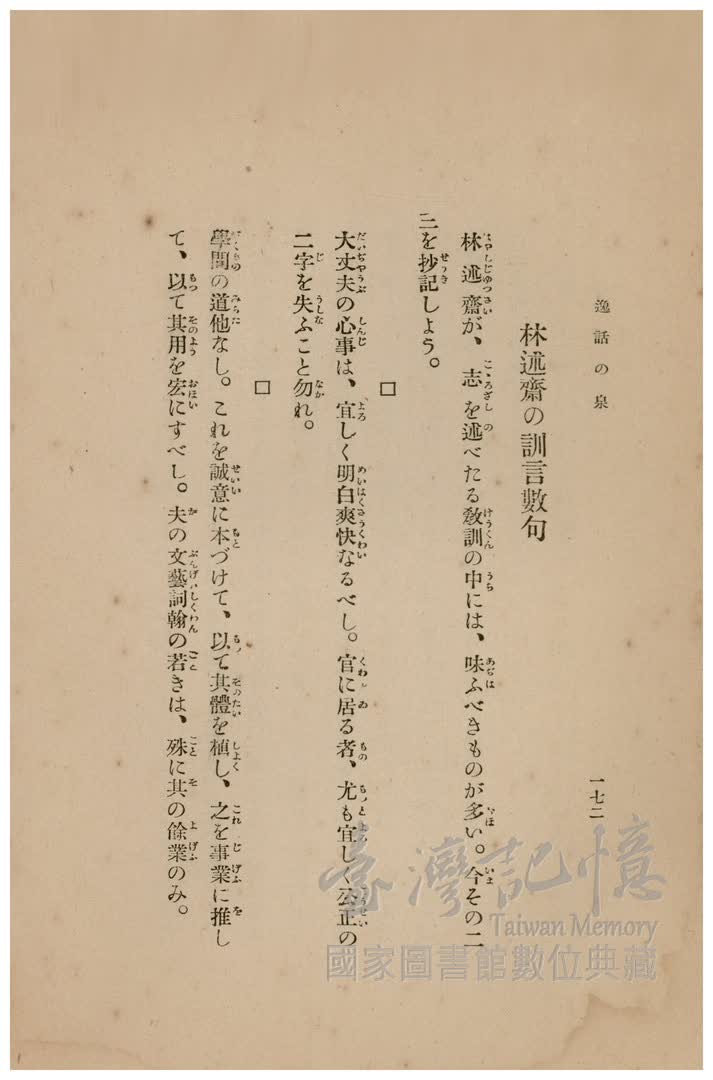 逸話の泉
一七二
林述齋の訓言數句
林述齋が、志を述べたる敎訓の中には、味ふべきものが多い。今その二
三を抄記しよう。
□
大丈夫の心事は、宜しく明白爽快なるべし。官に居る者、尤も宜しく公正の
二字を失ふこと勿れ。
□
學問の道他なし。これを誠意に本づけて、以て其體を植し、之を事業に推し
て、以て其用を宏にすべし。夫の文藝詞翰の若きは、殊に其の餘業のみ。
臺灣記憶
Taiwan Memory
國家圖書館數位典藏